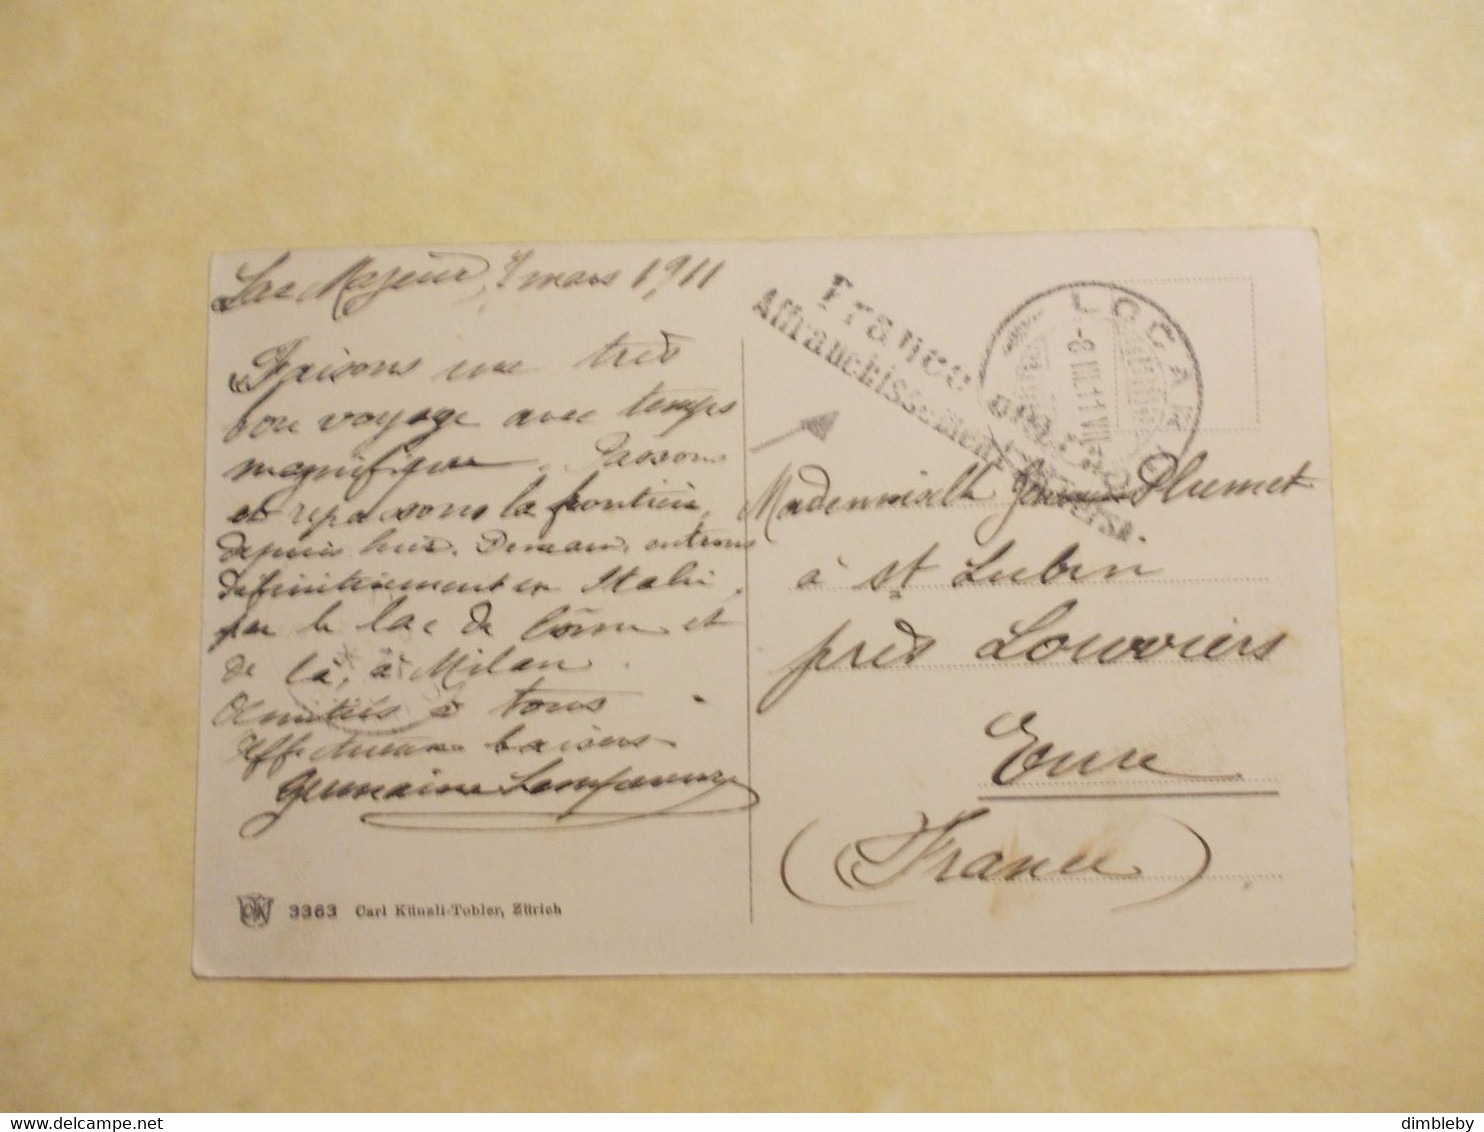 Lac Majeur, 7 mars 1911
Faisons un très
bon voyage avec temps
magnifique. Passons
et repassons la frontière
depuis hier. Demain, entrons
définitivement en Italie,
par le lac de Côme et
de là, à Milan.
Amitiés à tous
Affectueux baisers
Germaine
3363 Carl Künzli-Tobler, Zürich
Franco
Affranchissement
LOCAR
-8.III.11.VII
Mademoiselle Plumet
à St Lubin
près Louviers
Eure
(France)
delcampe.net
dimbleby